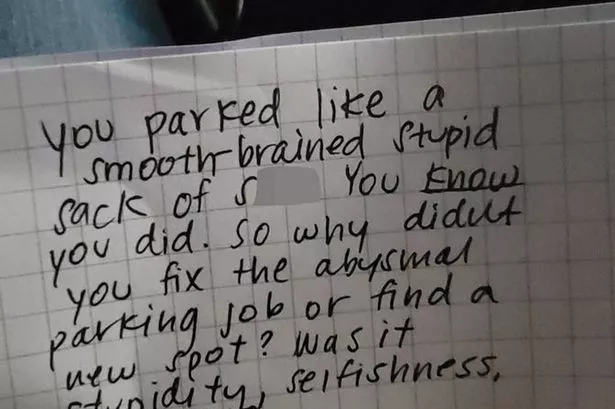 you parked like a
smooth-brained stupid
sack of s You know
you did. so why didn't
you fix the abysmal
parking job or find a
new spot? was it
stupidity, selfishness,